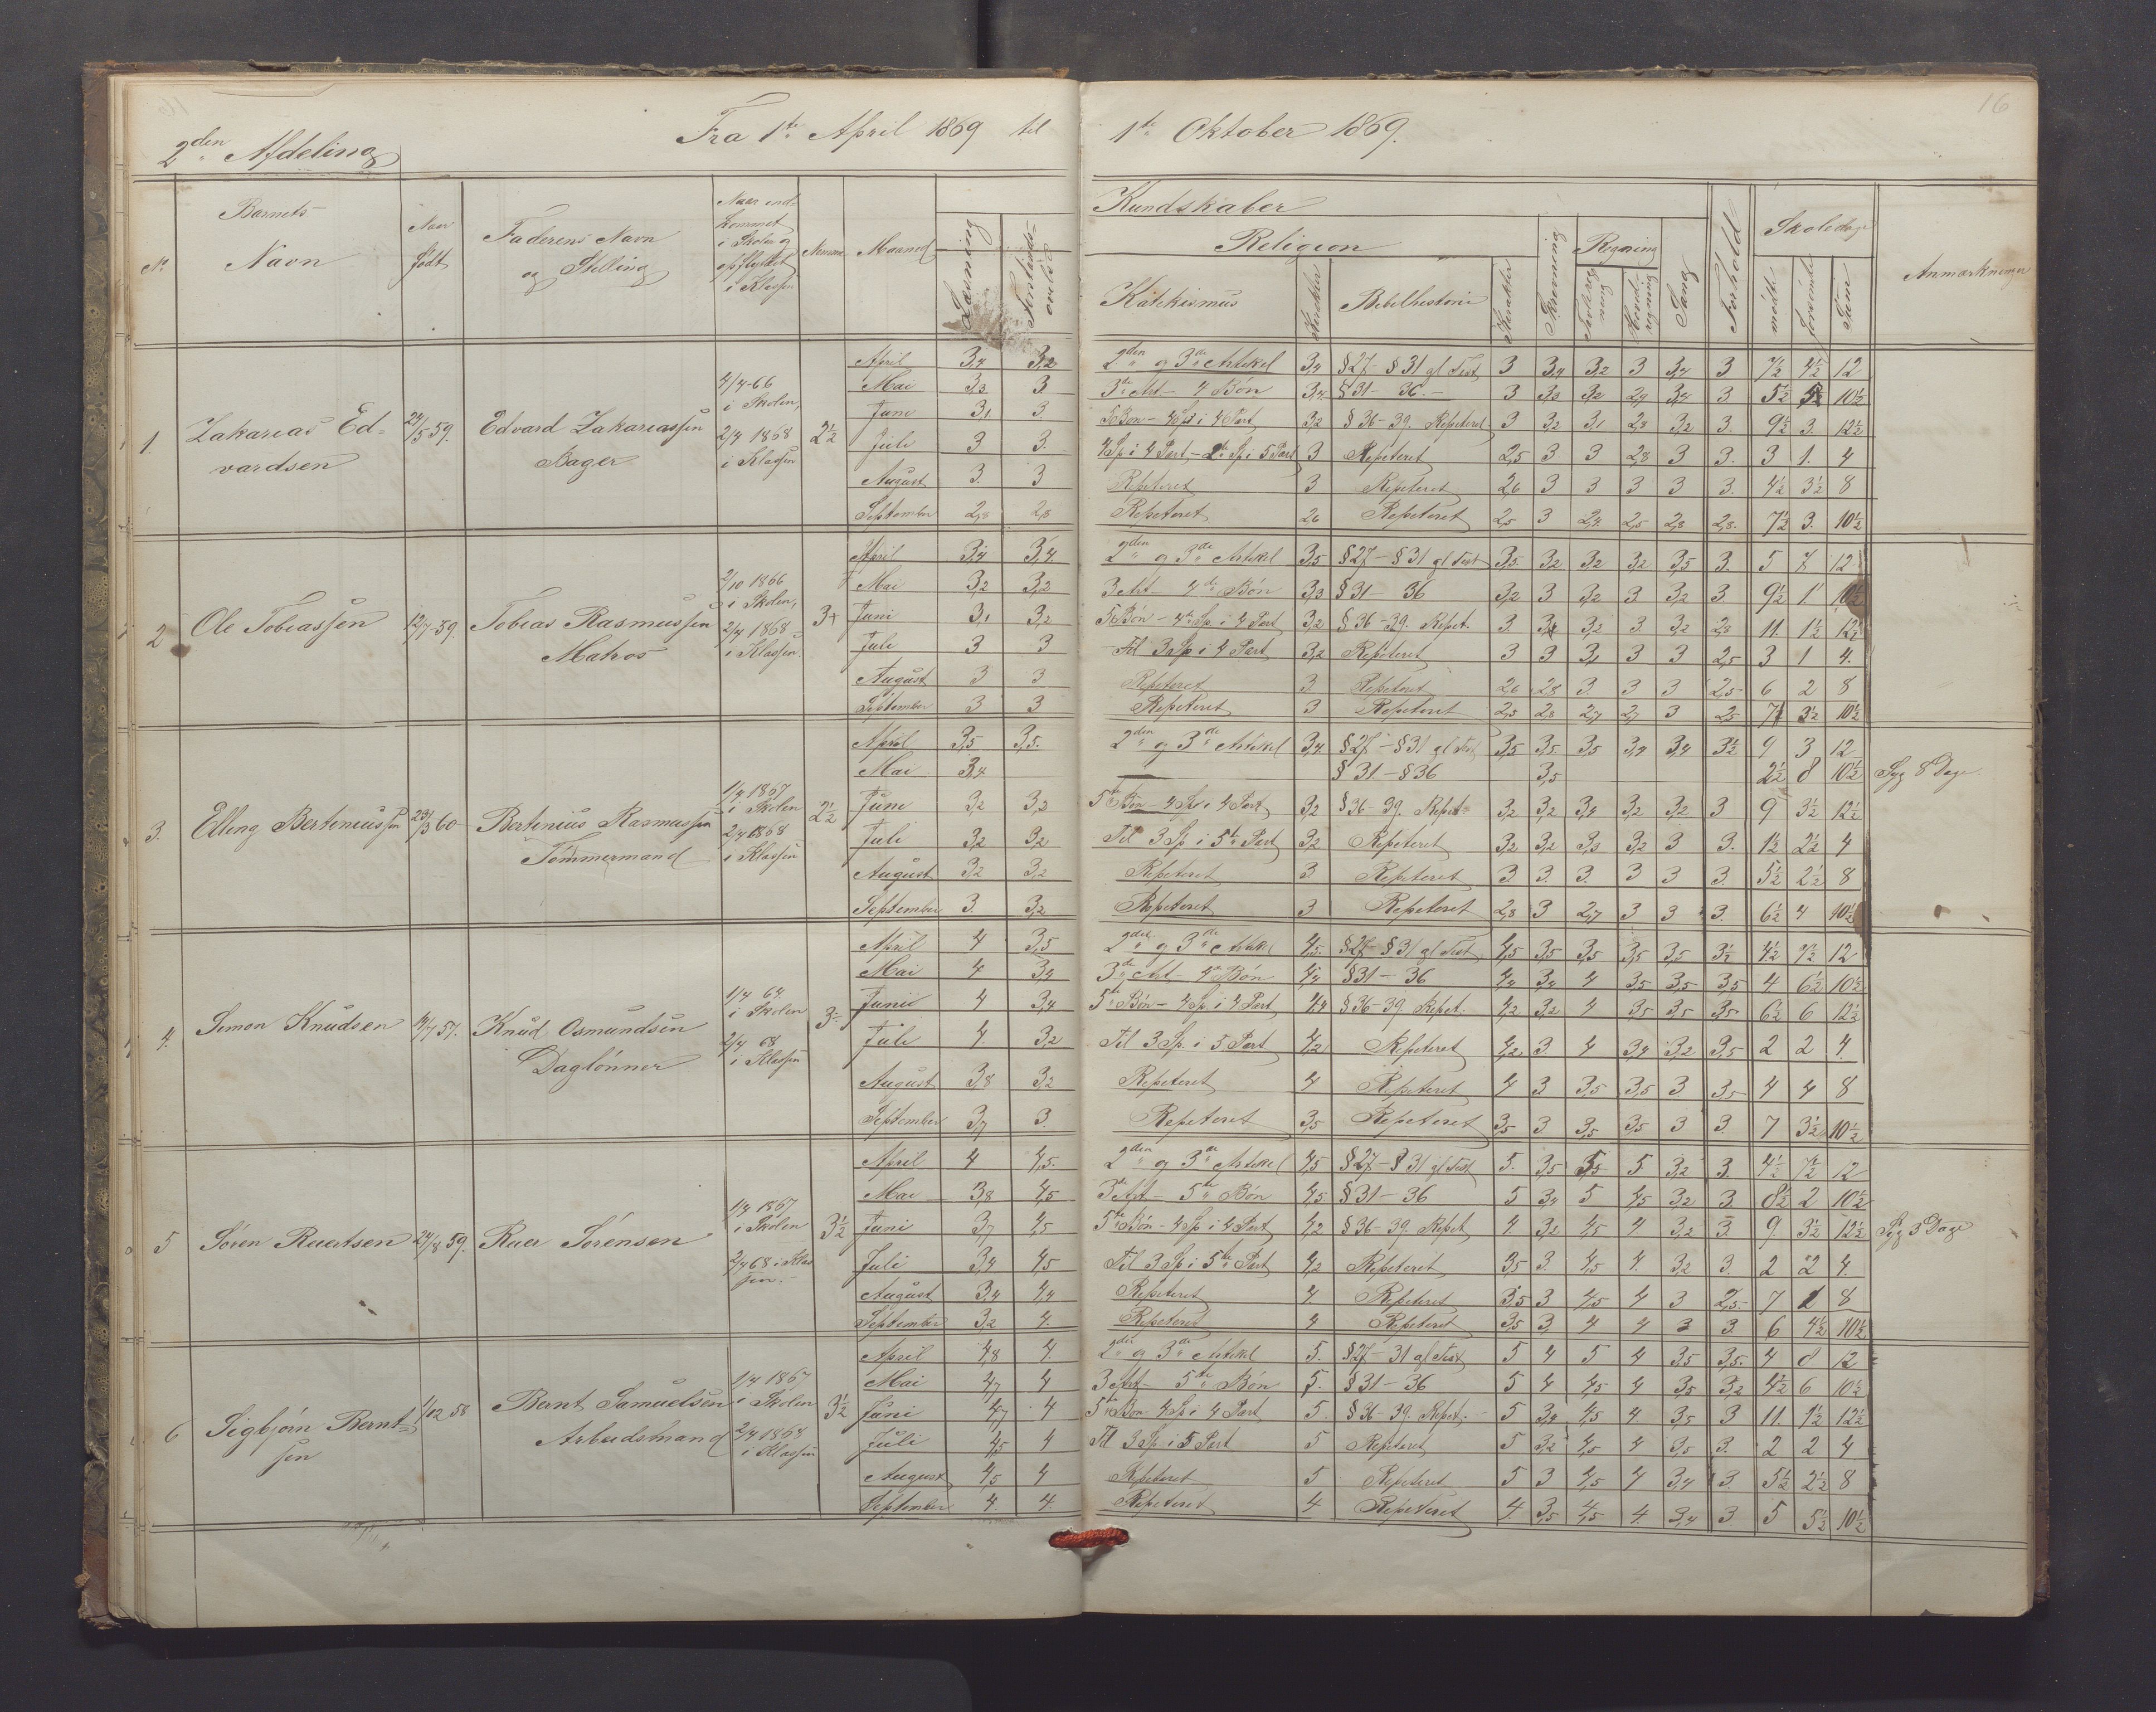 16
2den Afdeling
Fra 1ste April 1869 til 1ste Oktober 1869.
No. Barnets Navn Naar Født Faderens Navn og Stilling Naar ind- kommet i Skolen og opflyttet i Klassen Maaned Læsning
Kundskaber Religion Katekismus Karakter Bibelhistorie Karakter Skrivning Regning Tavleregning Hovedregning Sang Forhold Skoledage mødt forsømte Sum Anmærkninger
1. Zakarias Ed-
vardsen
24/5 59.
Edvard Zakariassen
Bager
4/4-66
i Skolen,
2/4 1868
i Klassen
2½
April 3,4 3,2 2den og 3die Artikel 3,4 §27-§31 gl Test 3 3,4 3,2 3 3,4 3 7½ 4½ 12
Mai 3,3 3 3die Art - 4 Bøn 3,4 §31-36.- 3 3,3 3,2 2,9 3,4 3 5½ 5 10½
Juni 3,1 3. 5 Bøn - 4 Sp i 4 Part 3,2 §36-39. Repeteret 3 3,2 3,1 2,8 3,2 3. 9½ 3. 12½
Juli 3 3. 4 Sp i 4 Part - 2 Sp i 5 Part 3 Repeteret 2,5 3 3 2,8 3 3. 3 1. 4
August 3. 3 Repeteret 3 Repeteret 2,6 3 3 3 3 3. 4½ 3½ 8
September 2,8 2,8 Repeteret 2,6 Repeteret 2,5 3 2,4 2,5 2,8 2,8. 7½ 3. 10½
2 Ole Tobiassen
12/7 59.
Tobias Rasmussen
Matros
2/10 1866
i Skolen,
2/4 1868
i Klassen.
3+
April 3,4 3,4. 2den og 3die Artikel 3,5 §27-§31 gl Test 3,5. 3,2 3,2 3,2 3,5 3. 5 7 12
Mai 3,2 3,2 3 Art - 4de Bøn 3,3 §31-36 3,2 3 3,2 3 3,2 3. 9½ 1 10½
Juni 3,1 3,2 5 Bøn - 4de Sp. i 4 Part 3,2 §36-39. Repet. 3. 3,1 3,2 3. 3,2 2,8 11. 1½ 12½
Juli 3 3 Til 3 Sp i 4 Part 3,2 Repeteret 3 3 3,1 3 3 2,5 3 1 4.
August 3 3 Repeteret 3 Repeteret 2,6 2,8 3. 3 3 2,5 6 2 8
September 3 3 Repeteret 3 Repeteret 2,5 2,8 2,7 2,7 3 2,5 7 3½ 10½
3. Elling Bertiniussen
23/3 60
Bertinius Rasmussen
Tømmermand
1/4 1867
i Skolen
2/4 1868
i Klassen
2½
April 3,5 3,5. 2den og 3die Artikel 3,4 §27-§31 gl Test 3,5 3,5. 3,5 3,4 3,4 3½ 9 3 12
Mai 3,4 §31.-§36 3,5 2½ 8 10½ Syg 8 Dage.
Juni 3,2 3,2 5te Bøn - 4 Sp i 4 Part 3,2 §36-39. Repet 3,2 3,2 3,4 3,2 3,2 3 9 3½ 12½
Juli 3,2 3,2 Til 3 Sp i 5te Part 3,2 Repeteret 3,2 3,2 3,3 3,2 3 3. 1½ 2½ 4
August 3,2 3,2 Repeteret 3 Repeteret 3. 3. 3. 3 3 3. 5½ 2½ 8
September 3. 3,2 Repeteret 3 Repeteret 2,8 3 2,7 3 3 3. 6½ 4 10½
4. Simon Knudsen
Knud Osmundsen
Daglønner
1/4 64.
i Skolen
2/4 68
i Klassen
April 4 3,5 2den og 3die Artikel 4,5. §27-§31 gl Test 4,5 3,5 3,5 3,5 3,5 3½ 4½ 7½ 12
Mai 4 3,4 3die Art - 4de Bøn 4,4 §31-36 4,4 3,4 4 3,5 3,5 3,5 4 6½ 10½
Juni 4 3,4 5te Bøn - 4 Sp. i 4 Part 4,4 §36-39 Repet. 4,2 3,2 4 3,5 3,5 3,5 6½ 6 12½
Juli 4. 3,2 Til 3 Sp. i 5 Part 4,2 Repeteret 4,2 3. 4 3,4 3,2 3,5 2 2 4.
August 3,8 3,2 Repeteret 4 Repeteret 4 3 3,5 3,5 3 3,5 4 4 8
September 3,7 3. Repeteret 3,5 Repeteret 3,5 3 3,5 3,5 3 3. 7 3½ 10½
5 Søren Ruertsen
24/8 59.
Ruer Sørensen
1/4 1867
i Skolen
2/4 68 i Klas
sen.-
3½
April 4 4,5. 2den og 3die Artikel 4,5 §27-§31 gl Test 5. 3,5 5,5 5 3,2 3. 4½ 7½ 12
Mai 3,8 4,5 3 Art - 5te Bøn 4,5 §31-36 5 3,4 5 4,5 3,2 3. 8½ 2 10½
Juni 3,7 4,5 5te Bøn - 4 Sp i 4 Part 4,2 §36-39. Repet 4. 3,2 4,5 4. 3,2 3. 9. 3½ 12½ Syg 3 Dage
Juli 3,4 4,5 Til 3 Sp i 5te Part 4,2 Repeteret 3,5 3. 4,5 4. 3,2 3. 2 2 4.
August 3,4 4,4 Repeteret 4. Repeteret 3,5 3 4,5 4 3 2,5. 7 1 8
September 3,2 4. Repeteret 4 Repeteret 3,5 3, 4 4 3 3. 6 4½ 10½
6 Sigbjørn Bernt-
sen
1/12 58
Bernt Samuelsen
Arbeidsmand
1/4 1867
i Skolen
2/4 1868
i Klassen
3½
April 4,8 4. 2den og 3die Artikel 5. §27-31 gl Test 5 4 5 4 3,5 3,5. 4 8 12
Mai 4,7 4 3 Art - 5te Bøn 5. §31-36 5 4 4,5 4 3,5 3,2 4½ 6 10½
Juni 4,7 4 5te Bøn - 4 Sp i 4 Part 5. §36-39. Repet. 5 3,4 4,5 4. 3,5 3 11. 1½ 12½
Juli 4,5 4 Til 3 Sp i 5 Part 5 Repeteret 5 3,2 4,5 4 3,5 3. 2 2 4
August 4,5 4 Repeteret 5 Repeteret 5 3 4,5 4 3,4 3. 5½ 2½ 8
September 4. 4. Repeteret 4 Repeteret 4 3,5 4,5 4. 3,4 3 5 5½ 10½